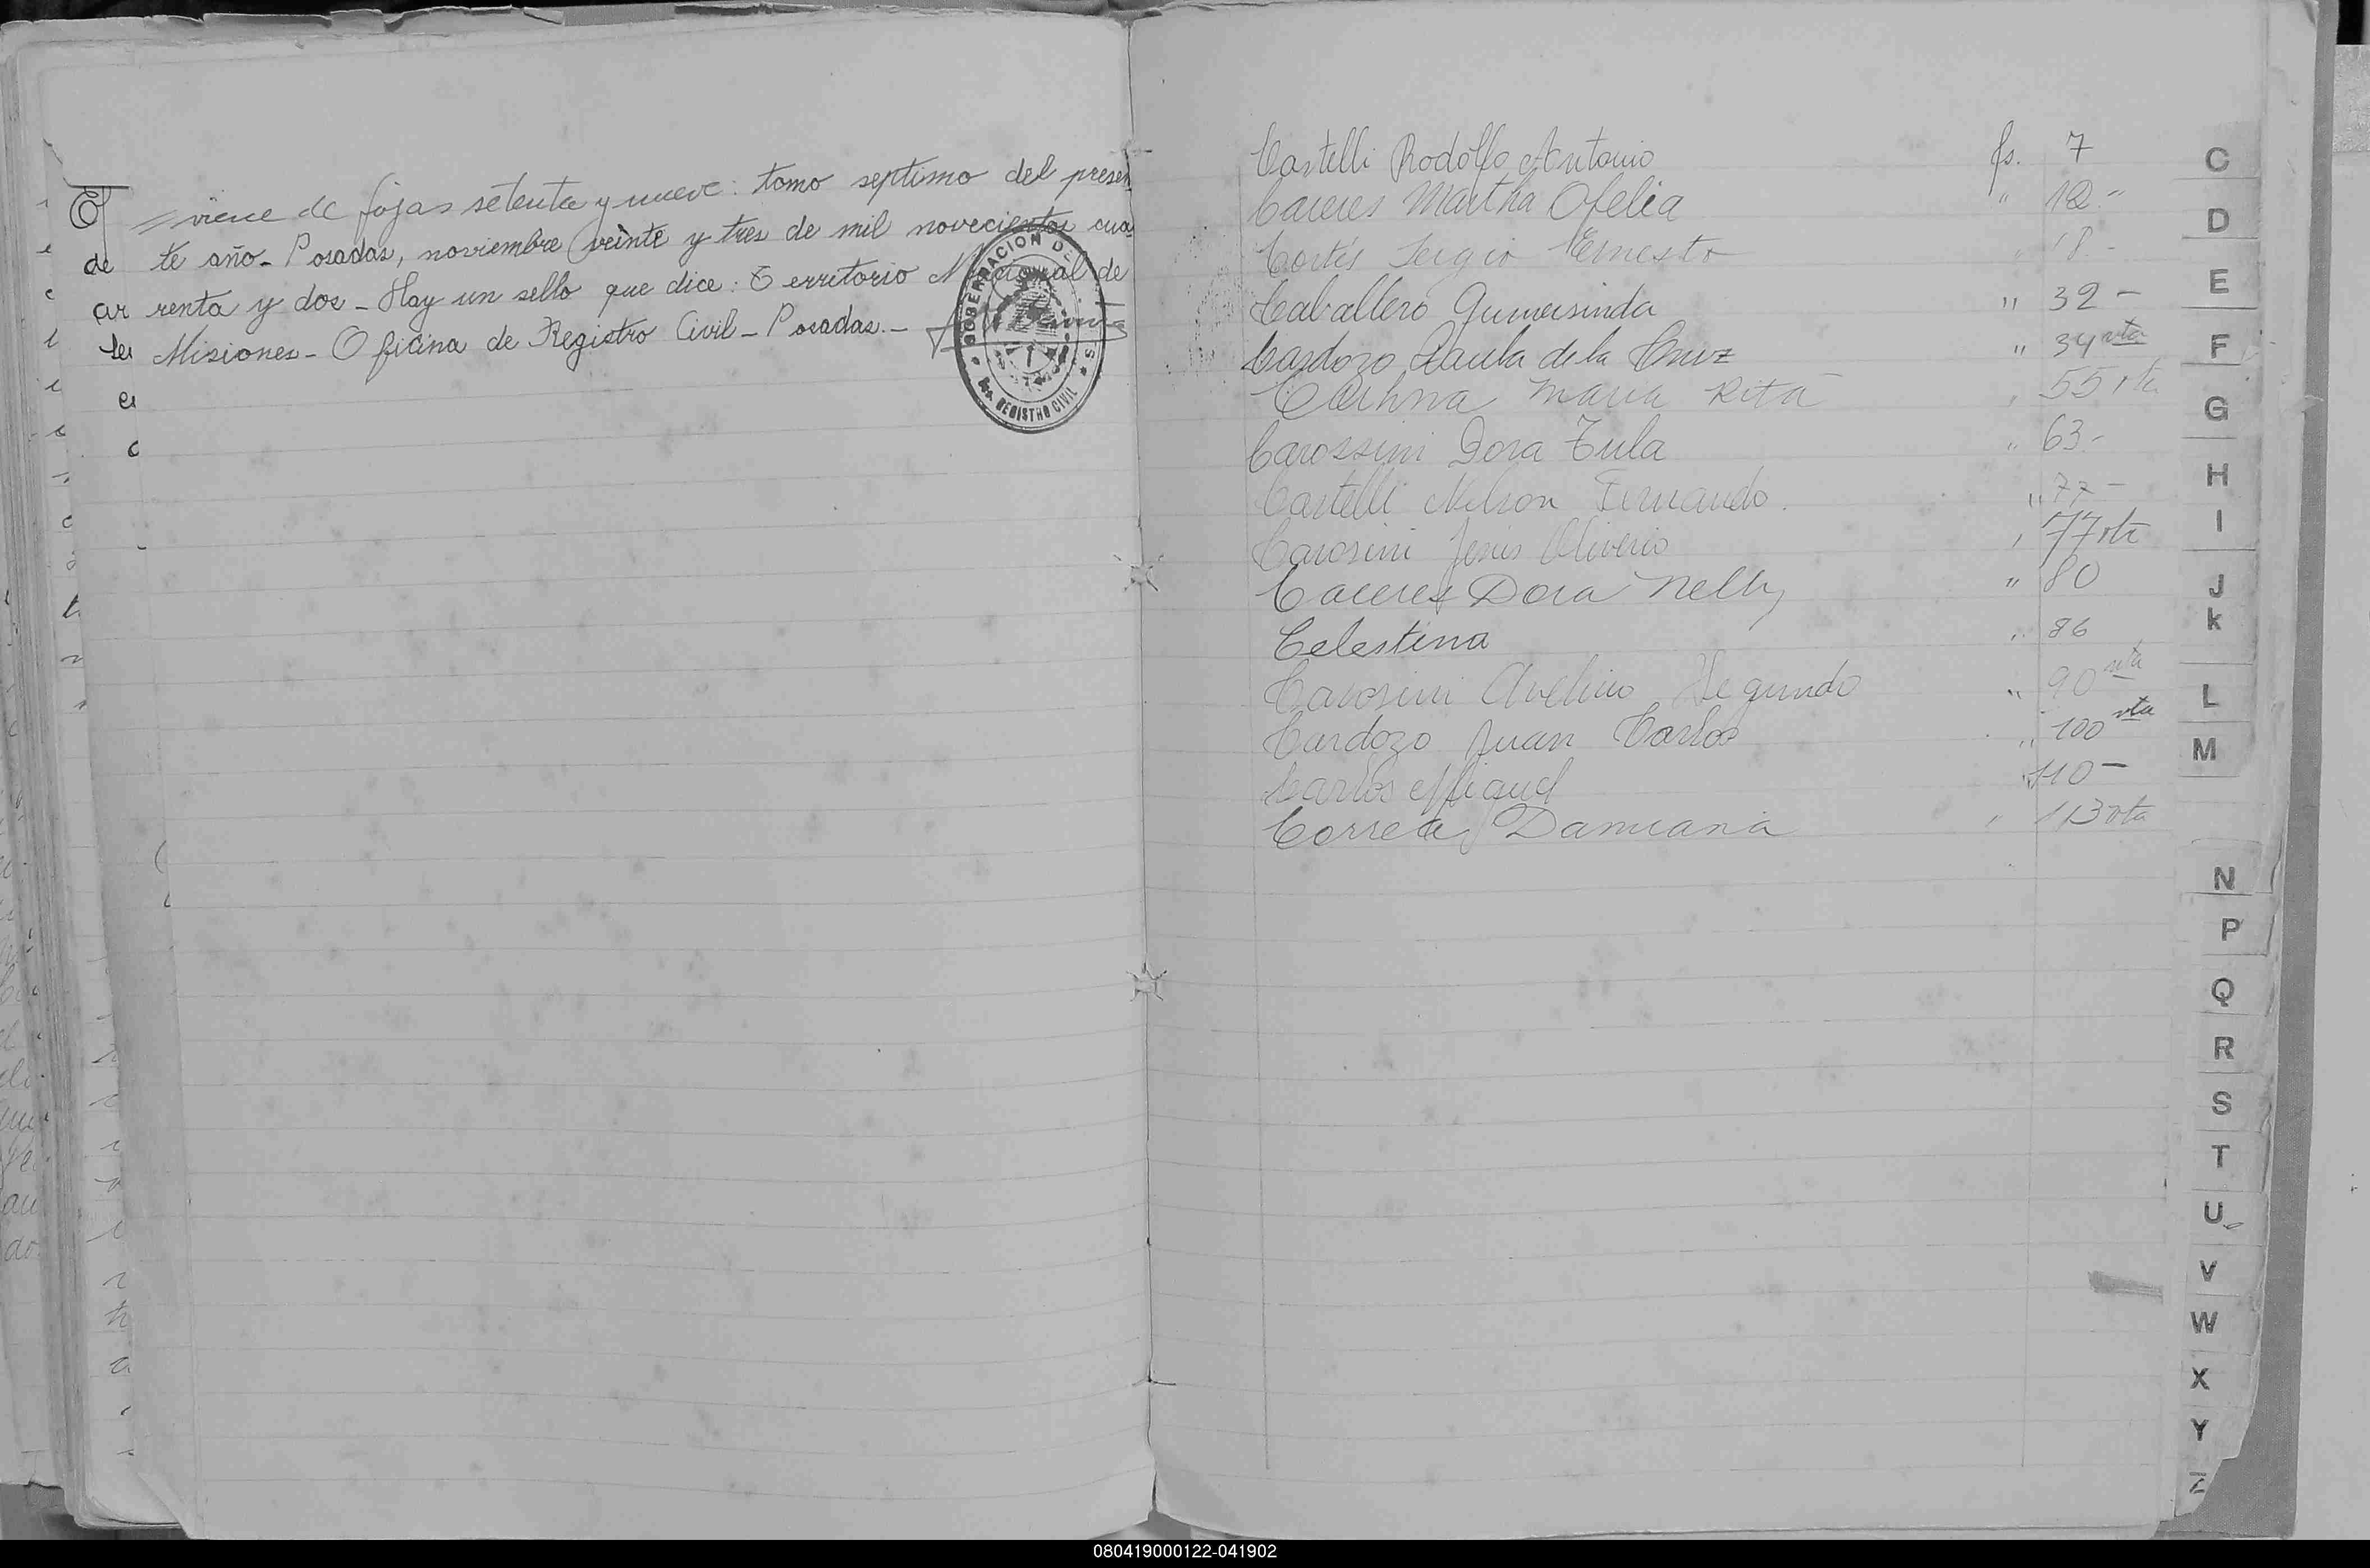 viene de fojas setenta y nueve: tomo septimo del presen
te año_ Posadas, noviembre veinte y tres de mil novecientos cua
renta y dos_ Hay un sello que dice: Territorio Nacional de
Misiones_ Oficina de Registro Civil_ Posadas._
GOBERNACION DE
REGISTRO CIVIL
Castelli Rodolfo Antonio fs. 7
Caceres Martha Ofelia " 12."
Cortés Sergio Ernesto " 18 -
Caballero Gumersinda " 32 -
Cardozo Paula de la Cruz " 34 vta
Maria Rita " 55 vta
Carossini Dora Tula " 63.-
Castelli Nelson Fernando. " 77 -
Carosini Jesús Oliverio " 77 vta
Caceres Dora Nelly " 80
Celestina " 86
Carosini Avelino Segundo " 90 vta
Cardozo Juan Carlos " 100 vta
Carlos Miguel " 110 -
Correa, Damiana " 113 vta
C
D
E
F
G
H
I
J
k
L
M
N
P
Q
R
S
T
U
V
W
X
Y
Z
080419000122-041902